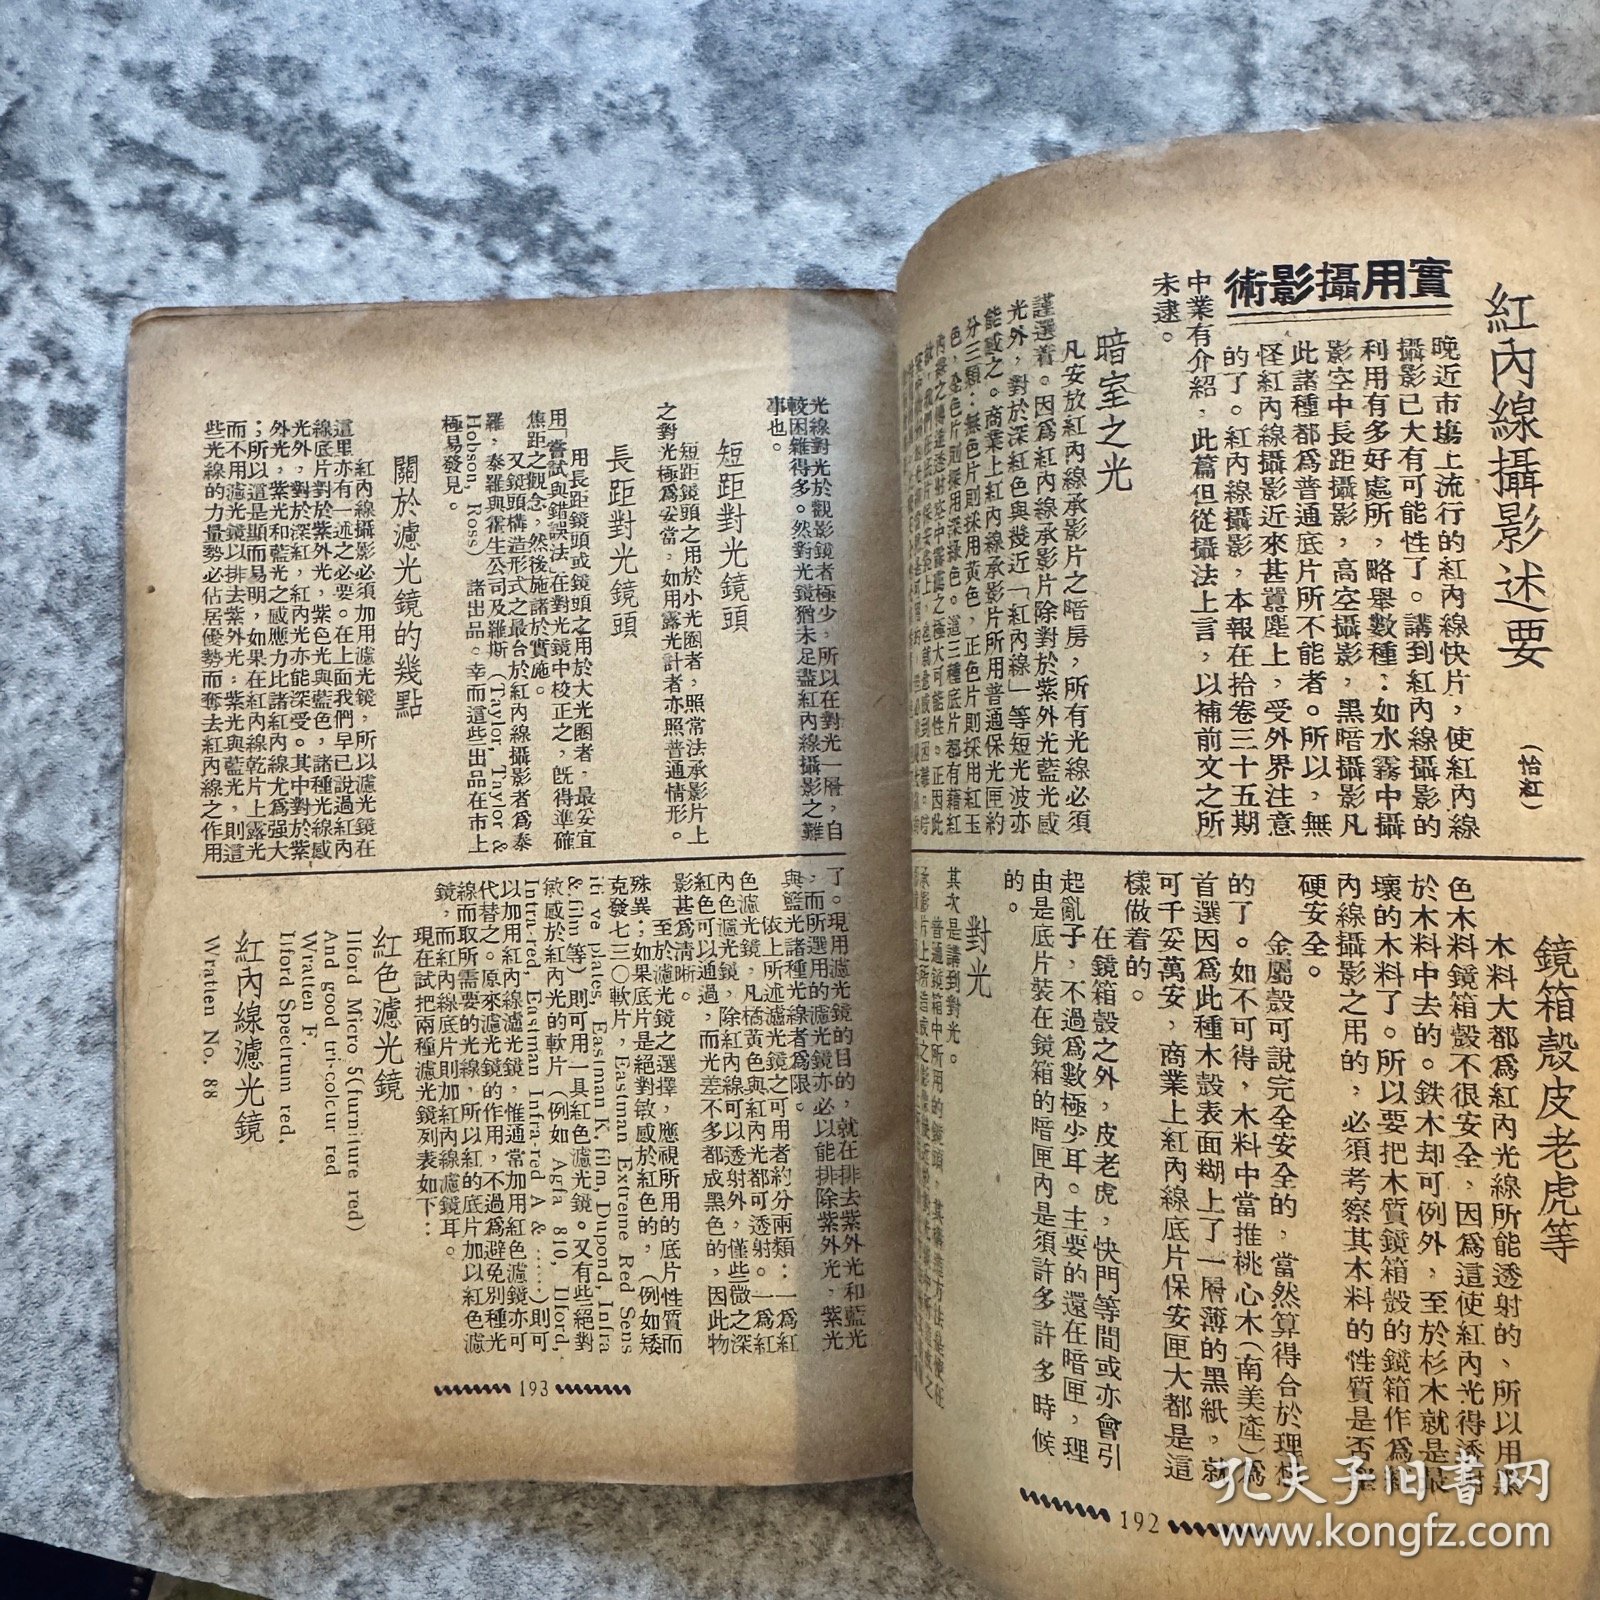 紅內線攝影述要
(怡紅)
實用攝影術
晚近市塲上流行的紅內線快片，使紅內線
攝影已大有可能性了。講到紅內線攝影的
利用有多好處所，略舉數種：如水霧中攝
影空中長距攝影，高空攝影，黑暗攝影凡
此諸種都爲普通底片所不能者。所以，無
怪紅內線攝影近來甚囂塵上，受外界注意
的了。紅內線攝影，本報在拾卷三十五期
中業有介紹，此篇但從攝法上言，以補前文之所
未逮。
暗室之光
凡安放紅內線承影片之暗房，所有光線必須
謹選着。因爲紅內線承影片除對於紫外光藍光感
光外，對於深紅色與幾近「紅內線」等短光波亦
能感之。商業上紅內線承影片所用普通保光匣約
分三類：無色片則採用黃色，正色片則採用紅玉
色，全色片則採用深綠色。這三種底片都有藉紅
鏡箱殼皮老虎等
木料大都爲紅內光線所能透射的、所以用黑
色木料鏡箱殼不很安全，因爲這使紅內光得透射
於木料中去的。鉄木却可例外，至於杉木就是最
壞的木料了。所以要把木質鏡箱殼的鏡箱作爲紅
內線攝影之用的，必須考察其木料的性質是否堅
硬安全。
金屬殼可說完全安全的，當然算得合於理想
的了。如不可得，木料中當推桃心木(南美產)爲
首選因爲此種木殼表面糊上了一層薄的黑紙，就
可千妥萬安，商業上紅內線底片保安匣大都是這
樣做着的。
在鏡箱殼之外，皮老虎，快門等間或亦會引
起亂子，不過爲數極少耳。主要的還在暗匣，理
由是底片裝在鏡箱的暗匣內是須許多許多時候
的。
對光
其次是講到對光。
192
光線對光於觀影鏡者極少，所以在對光一層，自
較困難得多。然對光鏡猶未足盡紅內線攝影之難
事也。
短距對光鏡頭
短距鏡頭之用於小光圈者，照常法承影片上
之對光極爲妥當，如用露光計者亦照普通情形。
長距對光鏡頭
用長距鏡頭或鏡頭之用於大光圈者，最妥宜
用「嘗試與錯誤法」在對光鏡中校正之，旣得準確
焦距之觀念，然後施諸於實施。
又鏡頭構造形式之最台於紅內線攝影者爲泰
羅，泰羅與霍生公司及羅斯 (Taylor, Taylor &
Hobson, Ross) 諸出品。幸而這些出品在市上
極易發見。
關於濾光鏡的幾點
紅內線攝影必須加用濾光鏡，所以濾光鏡在
這里亦有一述之必要。在上面我們早已說過紅內
線底片對於紫外光，紫色光與藍色，諸種光線感
光外，對於深紅，紅內光亦能深受。其中對於紫
外光，紫光和藍光之感應力比諸紅內線尤爲强大
；所以這是顯而易明，如果在紅內線乾片上露光
而不用濾光鏡以排去紫外光，紫光與藍光，則這
些光線的力量勢必佔居優勢而奪去紅內線之作用
了。現用濾光鏡的目的，就在排去紫外光和藍光
，而所選用的濾光鏡亦必以能排除紫外光，紫光
與藍光諸種光線者爲限。
依上所述濾光鏡之可用者約分兩類：一爲紅
色濾光鏡，凡橘黃色與紅內光都可透射。一爲紅
內色濾光鏡，除紅內線可以透射外，僅些微之深
紅色可以通過，而光差不多都成黑色的，因此物
影甚爲淸晰。
至於濾光鏡之選擇，應視所用的底片性質而
殊異；如果底片是絕對敏感於紅色的，(例如矮
克發七三〇軟片，Eastman Extreme Red Sens
iti ve plates, Eastman K. film, Dupond, Infra
& film 等) 則可用一具紅色濾光鏡。又有些絕對
敏感於紅內光的軟片 (例如 Agfa 810, Ilford,
Intra-red, Eastman Infra-red A & ……) 則可
以加用紅內線濾光鏡，惟通常加用紅色濾鏡亦可
代替之。原來濾光鏡的作用，不過爲避免別種光
線而取所需要的光線，所以紅的底片加以紅色濾
鏡，而紅內線底片則加紅內線濾鏡耳。
現在試把兩種濾光鏡列表如下：
紅色濾光鏡
Ilford Micro 5 (furniture red)
And good tri-colcur red
Wratten F.
Ilford Spectrum red,
紅內線濾光鏡
Wratten No. 88
193
孔夫子旧书网
www.kongfz.com